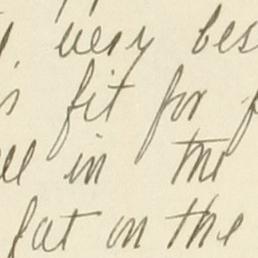 very bes
fit for
in the
fat on the